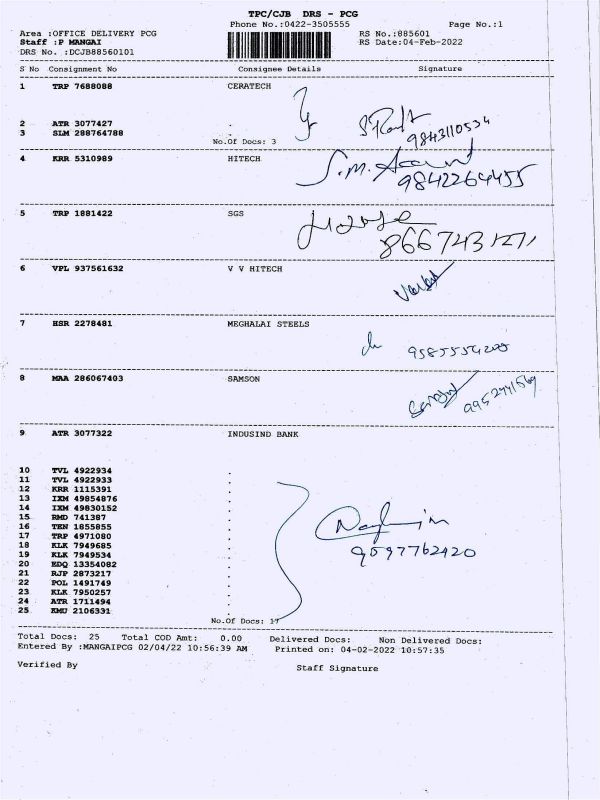 TPC/CJB DRS - PCG
Phone No.:0422-3505555 Page No.:1
Area :OFFICE DELIVERY PCG RS No.:885601
Staff :P MANGAI RS Date:04-Feb-2022
DRS No. :DCJB88560101
S No Consignment No Consignee Details Signature
1 TRP 7688088 CERATECH
2 ATR 3077427 .
3 SLM 288764788 .
9843110534
No.Of Docs: 3
4 KRR 5310989 HITECH
S.M.
9842264455
5 TRP 1881422 SGS
6 VPL 937561632 V V HITECH
7 HSR 2278481 MEGHALAI STEELS
8 MAA 286067403 SAMSON
9 ATR 3077322 INDUSIND BANK
10 TVL 4922934 .
11 TVL 4922933 .
12 KRR 1115391 .
13 IXM 49854876 .
14 IXM 49830152 .
15 RMD 741387 .
16 TEN 1855855 .
17 TRP 4971080 .
18 KLK 7949685 .
19 KLK 7949534 .
20 EDQ 13354082 .
21 RJP 2873217 .
22 POL 1491749 .
23 KLK 7950257 .
24 ATR 1711494 .
25 KMU 2106331 .
9597762420
No.Of Docs: 17
Total Docs: 25 Total COD Amt: 0.00 Delivered Docs: Non Delivered Docs:
Entered By :MANGAIPCG 02/04/22 10:56:39 AM Printed on: 04-02-2022 10:57:35
Verified By Staff Signature